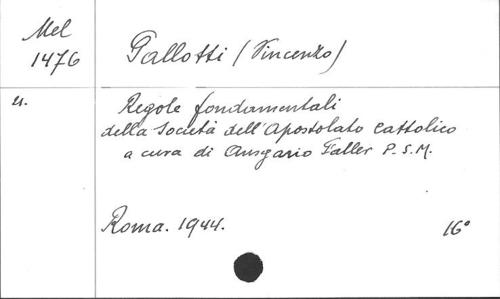 Mel
1476
Pallotti (Vincenzo)
u.
Regole fondamentali
della Società dell'Apostolato Cattolico
a cura di Ansgario Faller P.S.M.
Roma. 1944. 16°